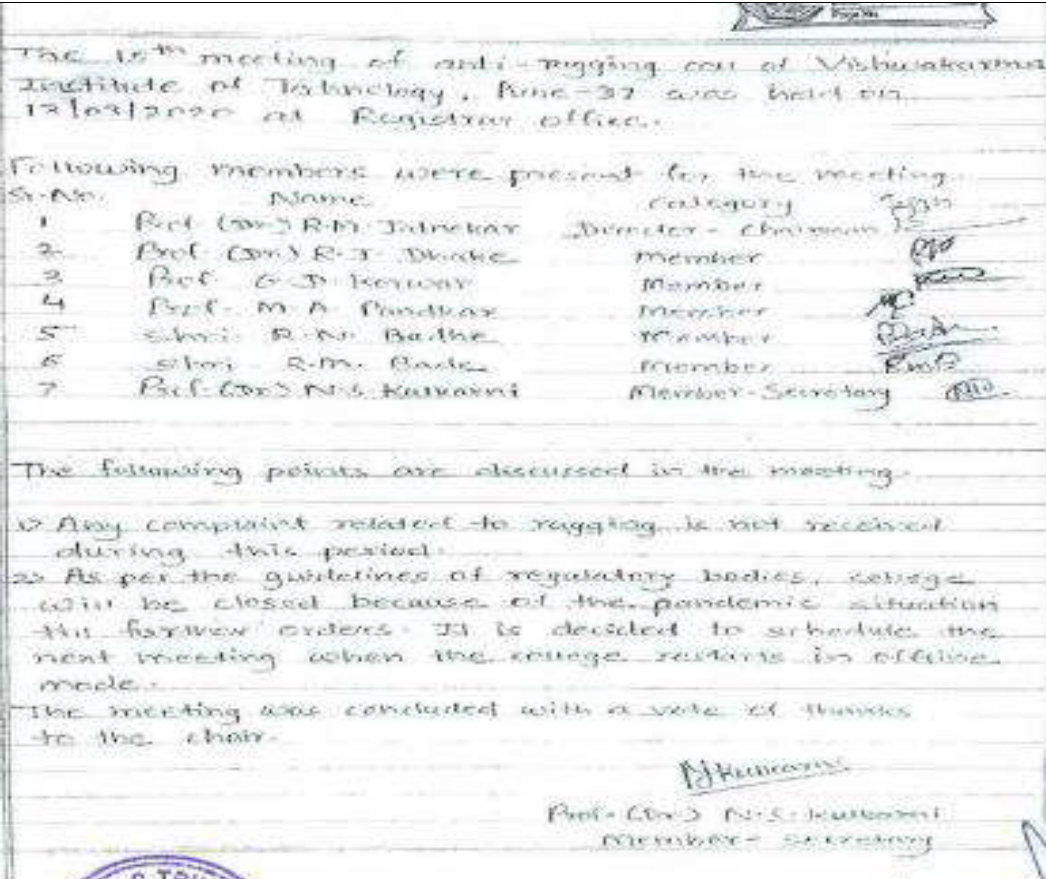 The 15th meeting of anti-ragging cell of Vishwakarma
Institute of Technology, Pune-37 was held on
at Registrar office.
Following members were present for the meeting.
Sr.No. Name Category Sign
1 Prof. (Dr.) R.M. Jalnekar Director - Chairman
2 Prof. (Dr.) R.J. Dhake Member
3 Prof. G.D. Korwar Member
4 Prof. M.A. Member
5 Shri. R.N. Member
6 Shri. R.M. Member
7 Prof. (Dr.) N.S. Kulkarni Member-Secretary
The following points are discussed in the meeting.
1) Any complaint related to ragging is not received
during this period.
2) As per the guidelines of regulatory bodies, college
will be closed because of the pandemic situation
till further orders. It is decided to schedule the
next meeting when the college restarts in offline
mode.
The meeting was concluded with a vote of thanks
to the chair.
NSKulkarni
Prof. (Dr.) N.S. Kulkarni
Member - Secretary